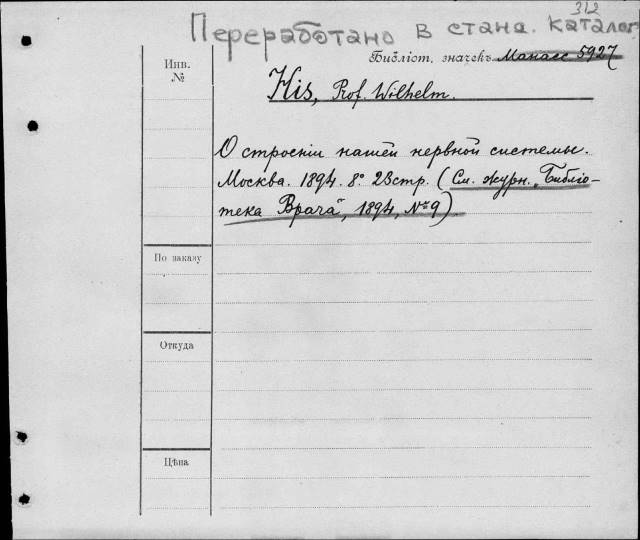 312
Переработано в станд. каталог
Библіот. значекъ Манасс 5927
Инв.
№
His, Prof. Wilhelm.
О строеніи нашей нервной системы.
Москва. 1894. 8°. 23 стр. (См. журн. „Библіо-
тека Врача", 1894, № 9).
По заказу
Откуда
Цѣна